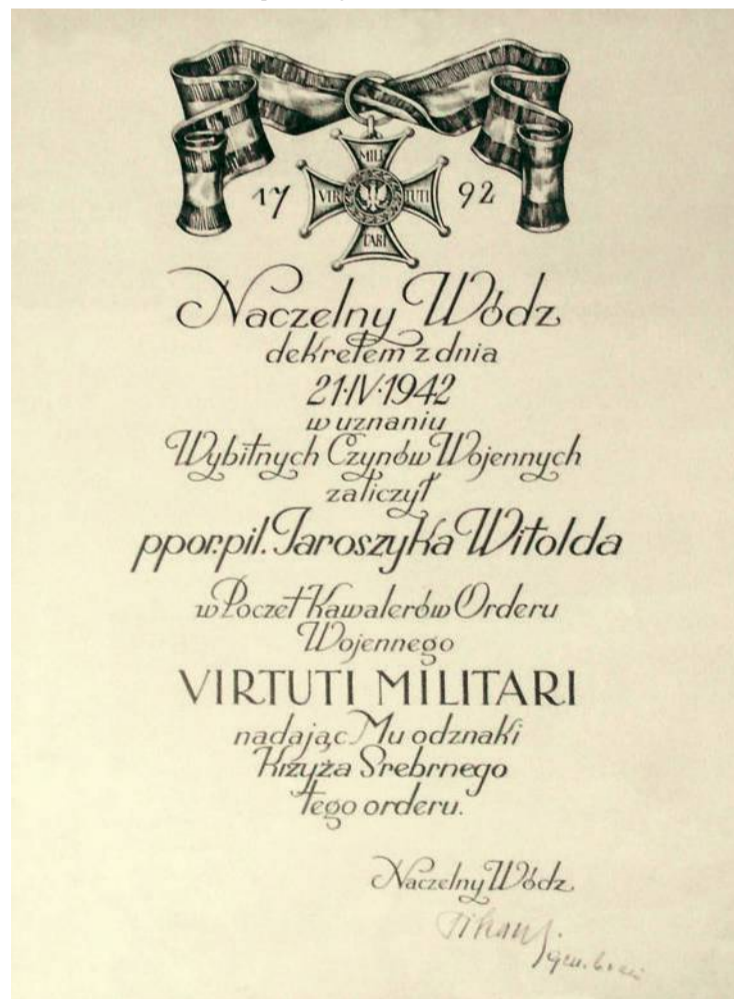 17 VIRTUTI MILITARI 92
Naczelny Wódz
dekretem z dnia
21·IV·1942
w uznaniu
Wybitnych Czynów Wojennych
zaliczył
ppor. pil. Jaroszyka Witolda
w Poczet Kawalerów Orderu
Wojennego
VIRTUTI MILITARI
nadając Mu odznaki
Krzyża Srebrnego
tego orderu.
Naczelny Wódz